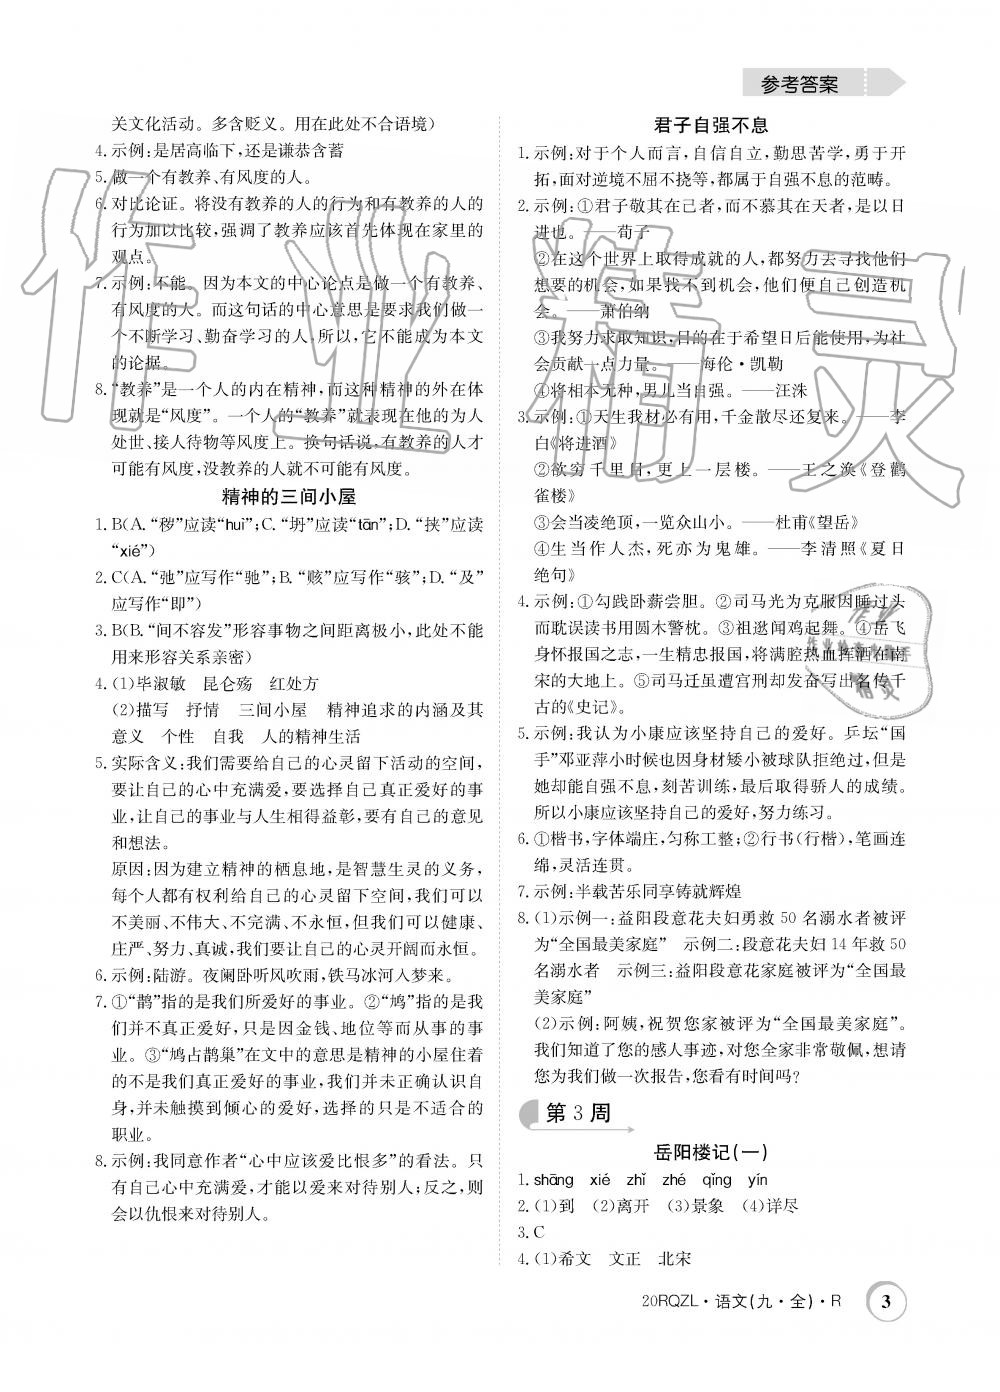 参考答案
关文化活动。多含贬义。用在此处不合语境)
4. 示例:是居高临下,还是谦恭含蓄
5. 做一个有教养、有风度的人。
6. 对比论证。将没有教养的人的行为和有教养的人的
行为加以比较,强调了教养应该首先体现在家里的
观点。
7. 示例:不能。因为本文的中心论点是做一个有教养、
有风度的人。而这句话的中心意思是要求我们做一
个不断学习、勤奋学习的人,所以,它不能成为本文
的论据。
8. “教养”是一个人的内在精神,而这种精神的外在体
现就是“风度”。一个人的“教养”就表现在他的为人
处世、接人待物等风度上。换句话说,有教养的人才
可能有风度,没教养的人就不可能有风度。
精神的三间小屋
1. B(A. “秽”应读“huì”;C. “坍”应读“tān”;D. “挟”应读
“xié”)
2. C(A. “弛”应写作“驰”;B. “赅”应写作“骇”;D. “及”
应写作“即”)
3. B(B. “间不容发”形容事物之间距离极小,此处不能
用来形容关系亲密)
4. (1)毕淑敏 昆仑殇 红处方
(2)描写 抒情 三间小屋 精神追求的内涵及其
意义 个性 自我 人的精神生活
5. 实际含义:我们需要给自己的心灵留下活动的空间,
要让自己的心中充满爱,要选择自己真正爱好的事
业,让自己的事业与人生相得益彰,要有自己的意见
和想法。
原因:因为建立精神的栖息地,是智慧生灵的义务,
每个人都有权利给自己的心灵留下空间,我们可以
不美丽、不伟大、不完满、不永恒,但我们可以健康、
庄严、努力、真诚,我们要让自己的心灵开阔而永恒。
6. 示例:陆游。夜阑卧听风吹雨,铁马冰河入梦来。
7. ①“鹊”指的是我们所爱好的事业。②“鸠”指的是我
们并不真正爱好,只是因金钱、地位等而从事的事
业。③“鸠占鹊巢”在文中的意思是精神的小屋住着
的不是我们真正爱好的事业,我们并未正确认识自
身,并未触摸到倾心的爱好,选择的只是不适合的
职业。
8. 示例:我同意作者“心中应该爱比恨多”的看法。只
有自己心中充满爱,才能以爱来对待别人;反之,则
会以仇恨来对待别人。
君子自强不息
1. 示例:对于个人而言,自信自立,勤思苦学,勇于开
拓,面对逆境不屈不挠等,都属于自强不息的范畴。
2. 示例:①君子敬其在己者,而不慕其在天者,是以日
进也。——荀子
②在这个世界上取得成就的人,都努力去寻找他们
想要的机会,如果找不到机会,他们便自己创造机
会。——萧伯纳
③我努力求取知识,目的在于希望日后能使用,为社
会贡献一点力量。——海伦·凯勒
④将相本无种,男儿当自强。——汪洙
3. 示例:①天生我材必有用,千金散尽还复来。——李
白《将进酒》
②欲穷千里目,更上一层楼。——王之涣《登鹳
雀楼》
③会当凌绝顶,一览众山小。——杜甫《望岳》
④生当作人杰,死亦为鬼雄。——李清照《夏日
绝句》
4. 示例:①勾践卧薪尝胆。②司马光为克服因睡过头
而耽误读书用圆木警枕。③祖逖闻鸡起舞。④岳飞
身怀报国之志,一生精忠报国,将满腔热血挥洒在南
宋的大地上。⑤司马迁虽遭宫刑却发奋写出名传千
古的《史记》。
5. 示例:我认为小康应该坚持自己的爱好。乒坛“国
手”邓亚萍小时候也因身材矮小被球队拒绝过,但是
她却能自强不息,刻苦训练,最后取得骄人的成绩。
所以小康应该坚持自己的爱好,努力练习。
6. ①楷书,字体端庄,匀称工整;②行书(行楷),笔画连
绵,灵活连贯。
7. 示例:半载苦乐同享铸就辉煌
8. (1)示例一:益阳段意花夫妇勇救 50 名溺水者被评
为“全国最美家庭” 示例二:段意花夫妇 14 年救 50
名溺水者 示例三:益阳段意花家庭被评为“全国最
美家庭”
(2)示例:阿姨,祝贺您家被评为“全国最美家庭”。
我们知道了您的感人事迹,对您全家非常敬佩,想请
您为我们做一次报告,您看有时间吗?
第 3 周
岳阳楼记(一)
1. shāng xié zhǐ zhé qǐng yín
2. (1)到 (2)离开 (3)景象 (4)详尽
3. C
4. (1)希文 文正 北宋
20RQZL·语文(九·全)·R 3
作业精灵